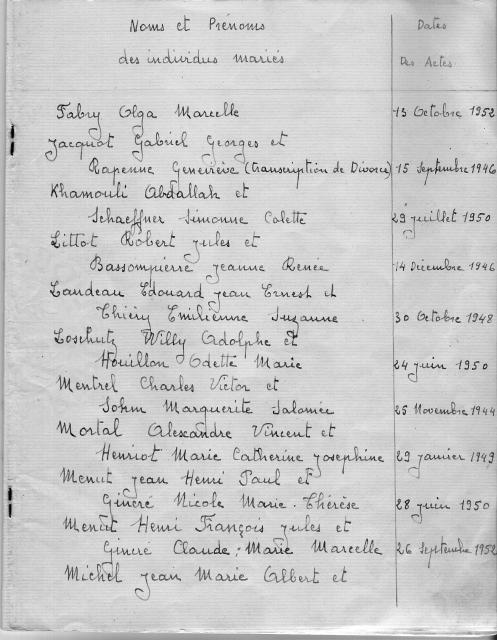 Noms et Prénoms
Dates
des individus mariés
Des Actes
Fabry Olga Marcelle 13 Octobre 1952
Jacquot Gabriel Georges et
Rapenne Geneviève (transcription de Divorce) 15 Septembre 1946
Khamouli Abdallah et
Schaeffner Simonne Colette 29 juillet 1950
Littot Robert Jules et
Bassompierre Jeanne Renée 14 Décembre 1946
Landeau Edouard Jean Ernest et
Thiéry Emilienne Suzanne 30 Octobre 1948
Loschutz Willy Adolphe et
Houillon Odette Marie 24 juin 1950
Mentrel Charles Victor et
Sohm Marguerite Salomée 25 Novembre 1944
Mortal Alexandre Vincent et
Henriot Marie Catherine Josephine 29 janvier 1949
Menut Jean Henri Paul et
Gineré Nicole Marie-Thérèse 28 juin 1950
Menut Henri François Jules et
Gineré Claude, Marie Marcelle 26 Septembre 1952
Michel Jean Marie Albert et